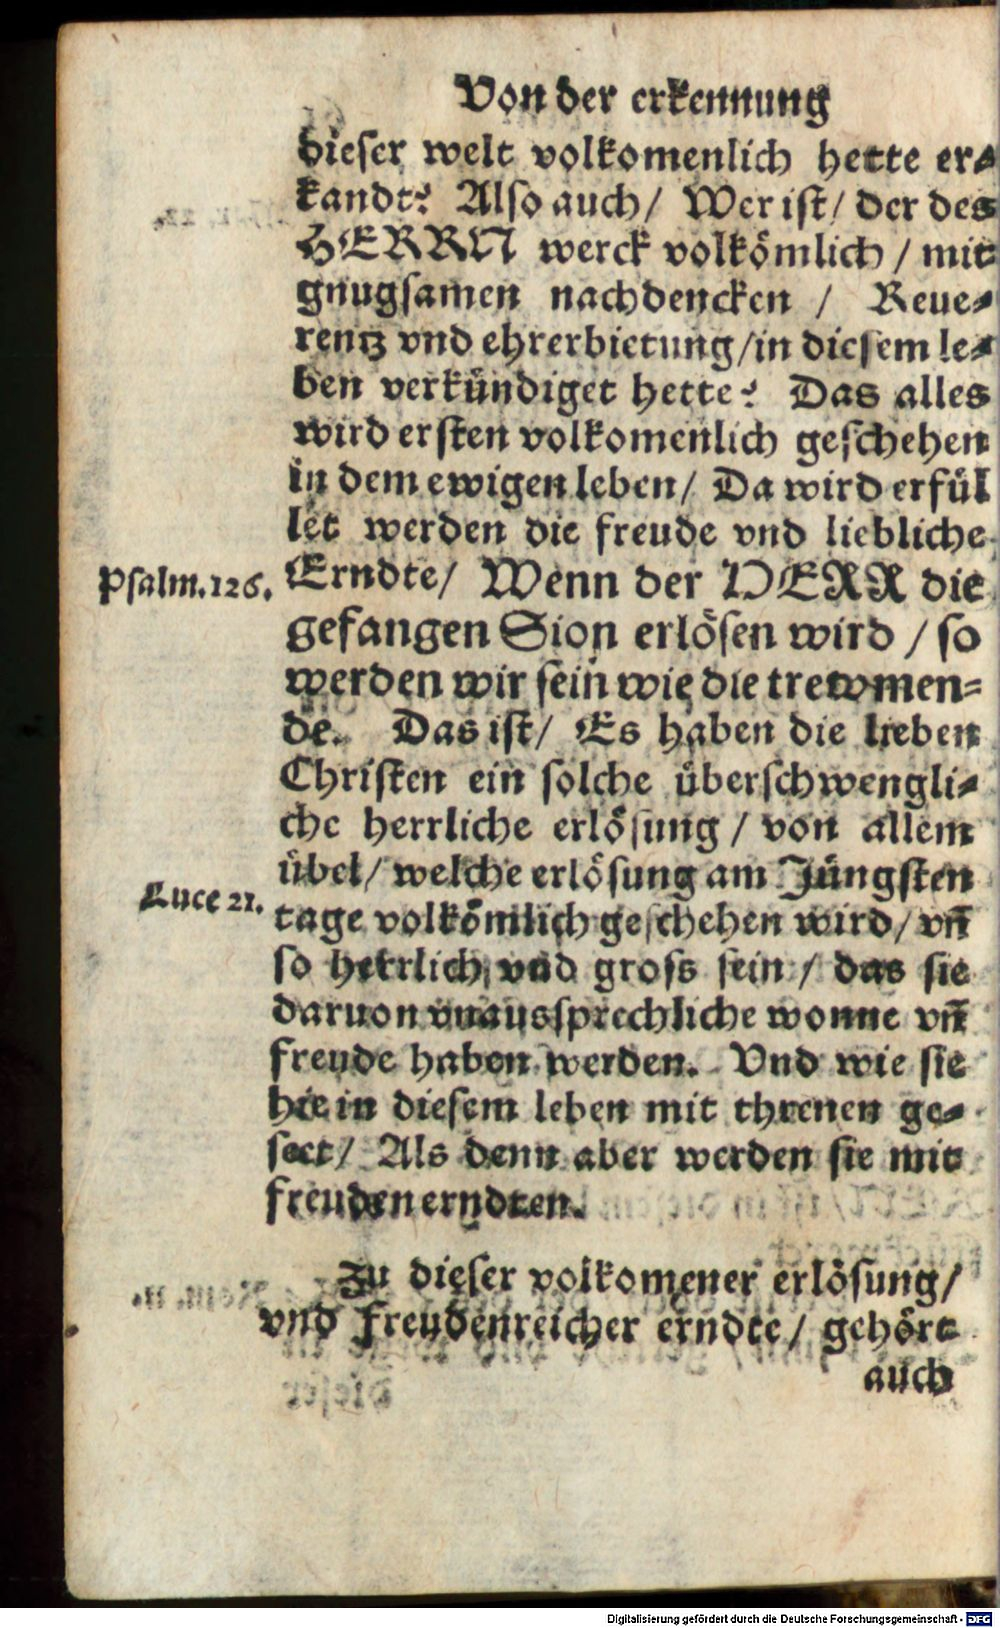 Von der erkennung
dieser welt volkomenlich hette er-
kandt? Also auch/ Wer ist/ der des
HERRN werck volkömlich / mit
gnugsamen nachdencken / Reue-
rentz vnd ehrerbietung/in diesem le-
ben verkündiget hette? Das alles
wird ersten volkomenlich geschehen
in dem ewigen leben/ Da wird erfül
let werden die freude vnd liebliche
Psalm.126. Erndte/ Wenn der HERR die
gefangen Sion erlösen wird / so
werden wir sein wie die trewmen-
de. Das ist/ Es haben die lieben
Christen ein solche überschwengli-
che herrliche erlösung / von allem
übel/ welche erlösung am Jüngsten
Luce 21. tage volkömlich geschehen wird/ vñ
so herrlich vnd gross sein / das sie
daruon vnaussprechliche wonne vñ
freude haben werden. Vnd wie sie
hie in diesem leben mit threnen ge-
seet/ Als denn aber werden sie mit
freuden erndten.
Zu dieser volkomener erlösung/
vnd freudenreicher erndte/ gehört
auch
Digitalisierung gefördert durch die Deutsche Forschungsgemeinschaft - DFG